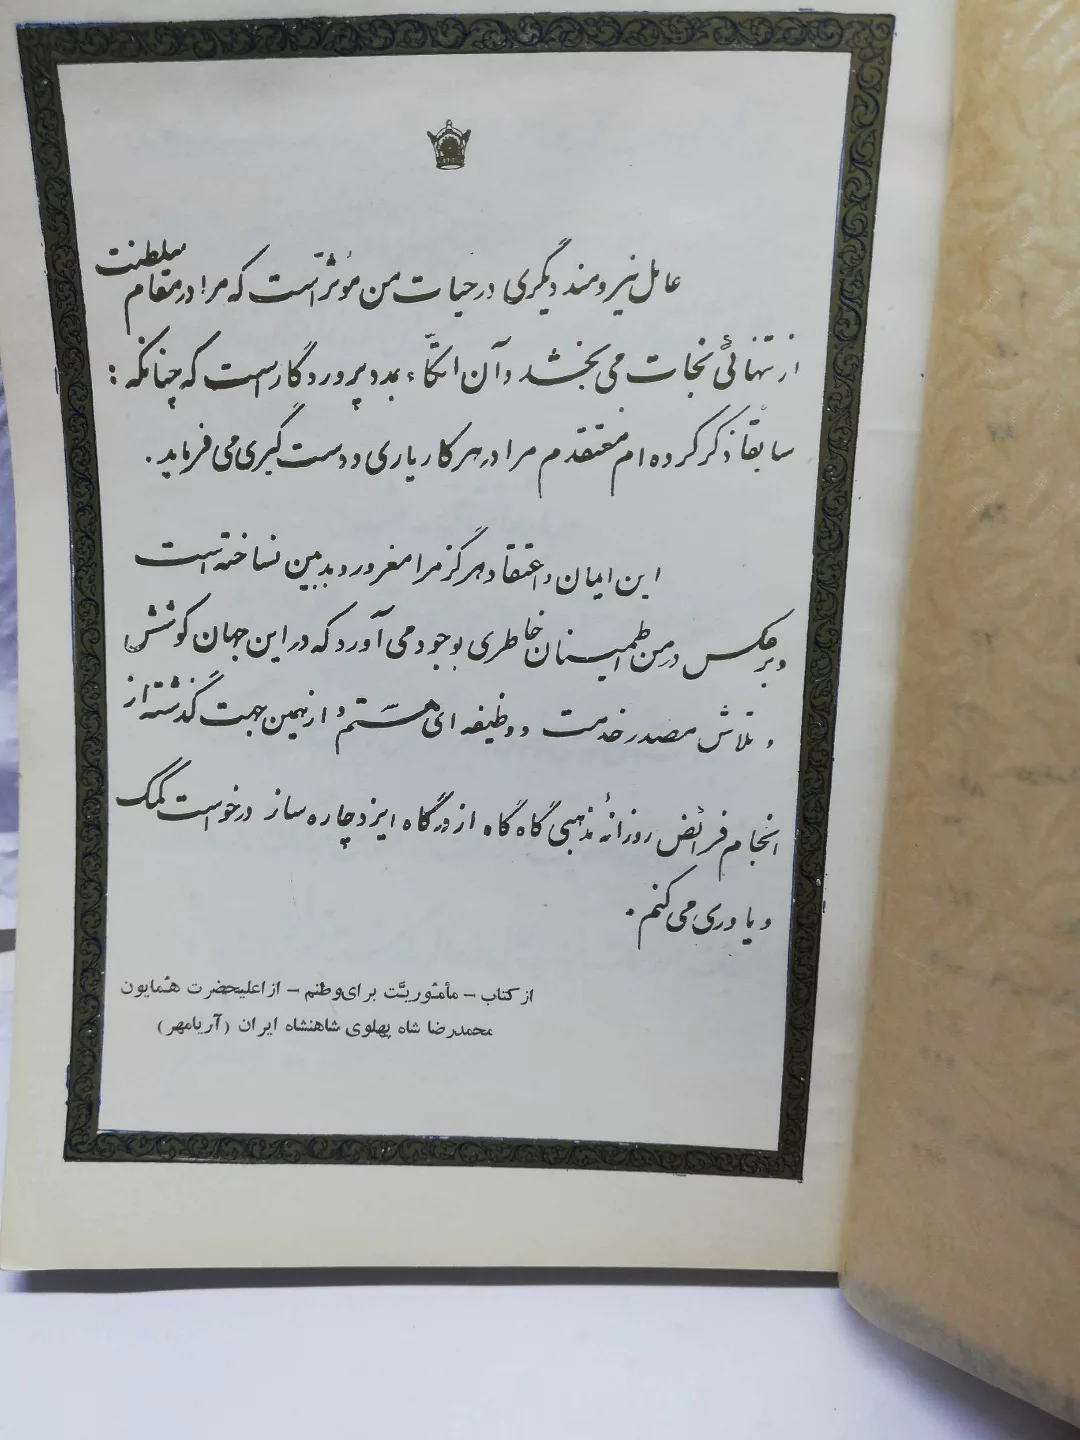 عامل نیرومند دیگری در حیات من مؤثر است که مرا در مقام سلطنت
از تنهائی نجات می بخشد و آن اتکاء بمدد پروردگار است که چنانکه :
سابقاً ذکر کرده ام معتقدم مرا در هر کار یاری و دست گیری می فرماید .
این ایمان و اعتقاد هرگز مرا مغرور و بدبین نساخته است
و برعکس در من اطمینان خاطری بوجود می آورد که در این جهان کوشش
و تلاش مصدر خدمت و وظیفه ای هستم و از همین جهت گذشته از
انجام فرائض روزانهٔ مذهبی گاه گاه از درگاه ایزد چاره ساز درخواست کمک
و یاوری می کنم .
از کتاب - مأموریّت برای وطنم - از اعلیحضرت همایون
محمدرضا شاه پهلوی شاهنشاه ایران (آریامهر)